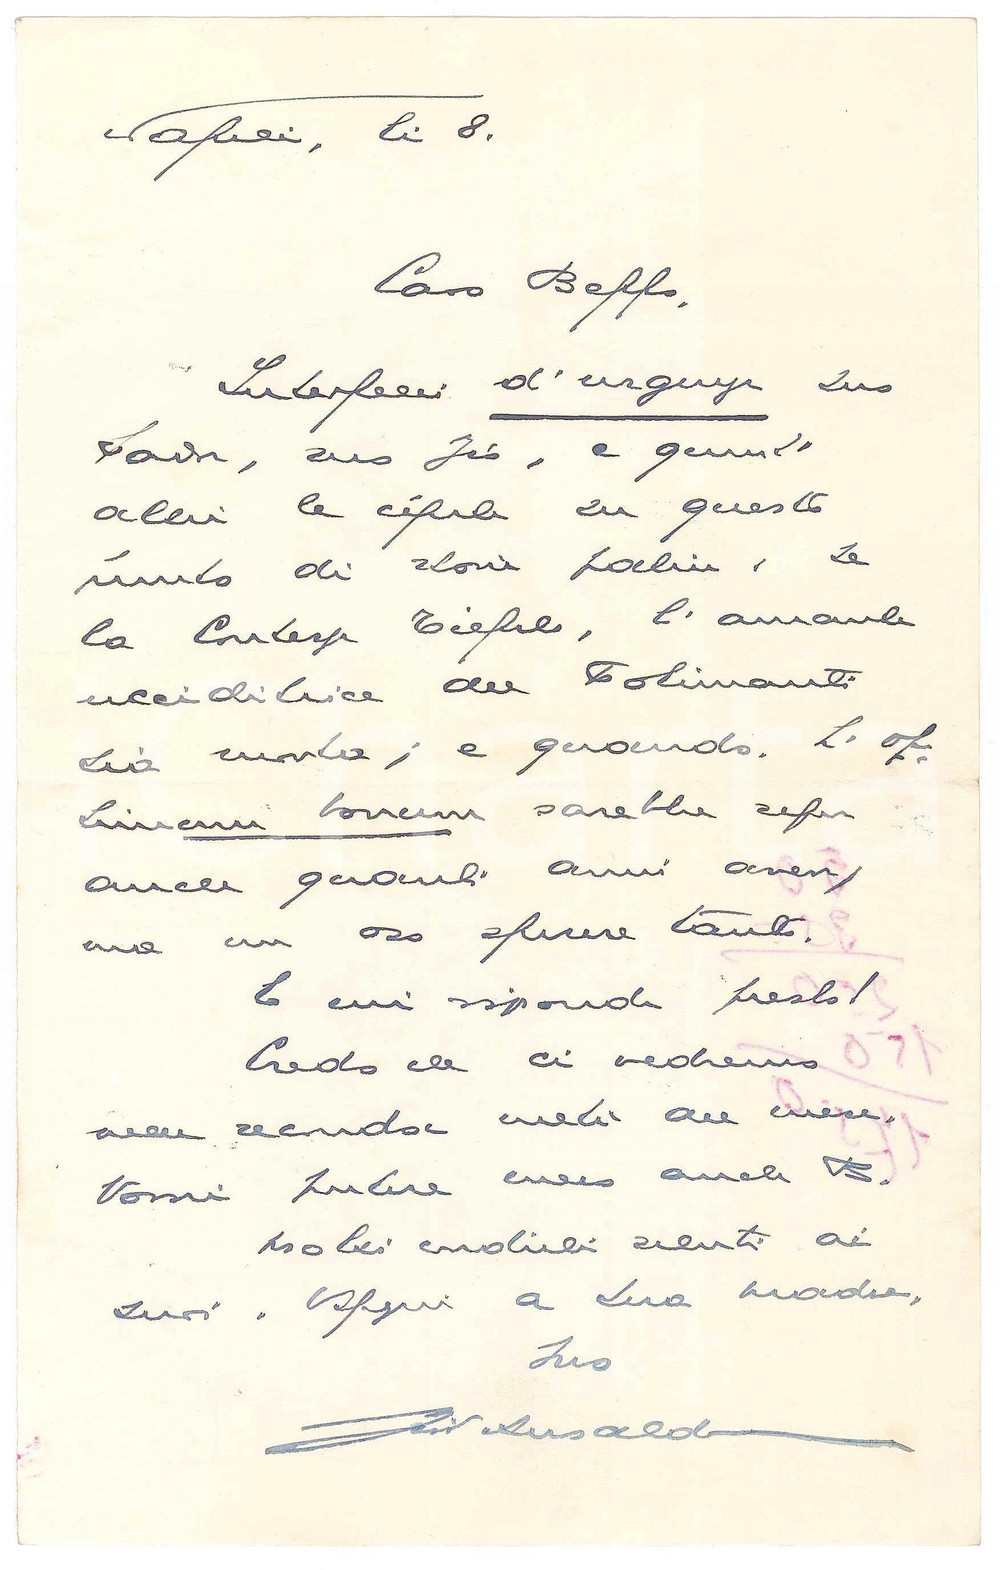 Napoli, li 8.
Caro Beppe,
Interpelli d'urgenza suo
Padre, suo zio, e quanti
altri le capita su questo
punto di storia patria: se
la Contessa Tiepolo, l'amante
ucciditrice del Polimanti
sia morta; e quando. L'op-
timum bonum sarebbe saper
anche quanti anni aveva,
ma non oso sperare tanto.
E mi risponda presto!
Credo che ci vedremo
nella seconda metà del mese.
Vorrei potere
molti cordiali saluti ai
suoi. Ossequi a sua madre.
Suo